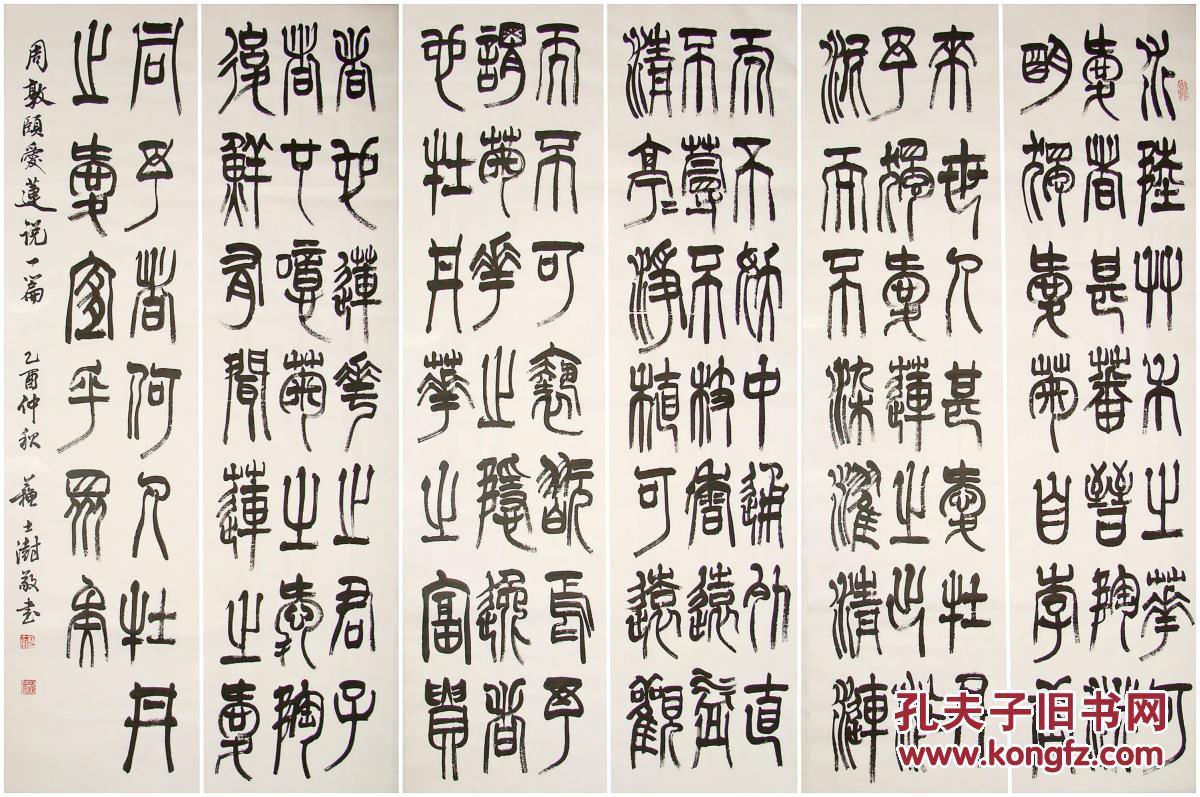 水陸艸木之華可
愛者甚蕃晉陶淵
明獨愛菊自李唐
來世人甚愛牡丹
予獨愛蓮之出淤
泥而不染濯清漣
而不妖中通外直
不蔓不枝香遠益
清亭〻淨植可遠觀
而不可褻翫焉予
謂菊花之隱逸者
也牡丹華之富貴
者也蓮花之君子
者也噫菊之愛陶
後鮮有聞蓮之愛
同予者何人牡丹
之愛宜乎眾矣
周敦頤愛蓮说一篇 乙酉仲秋 蘇士澍敬书
孔夫子旧书网
www.kongfz.com